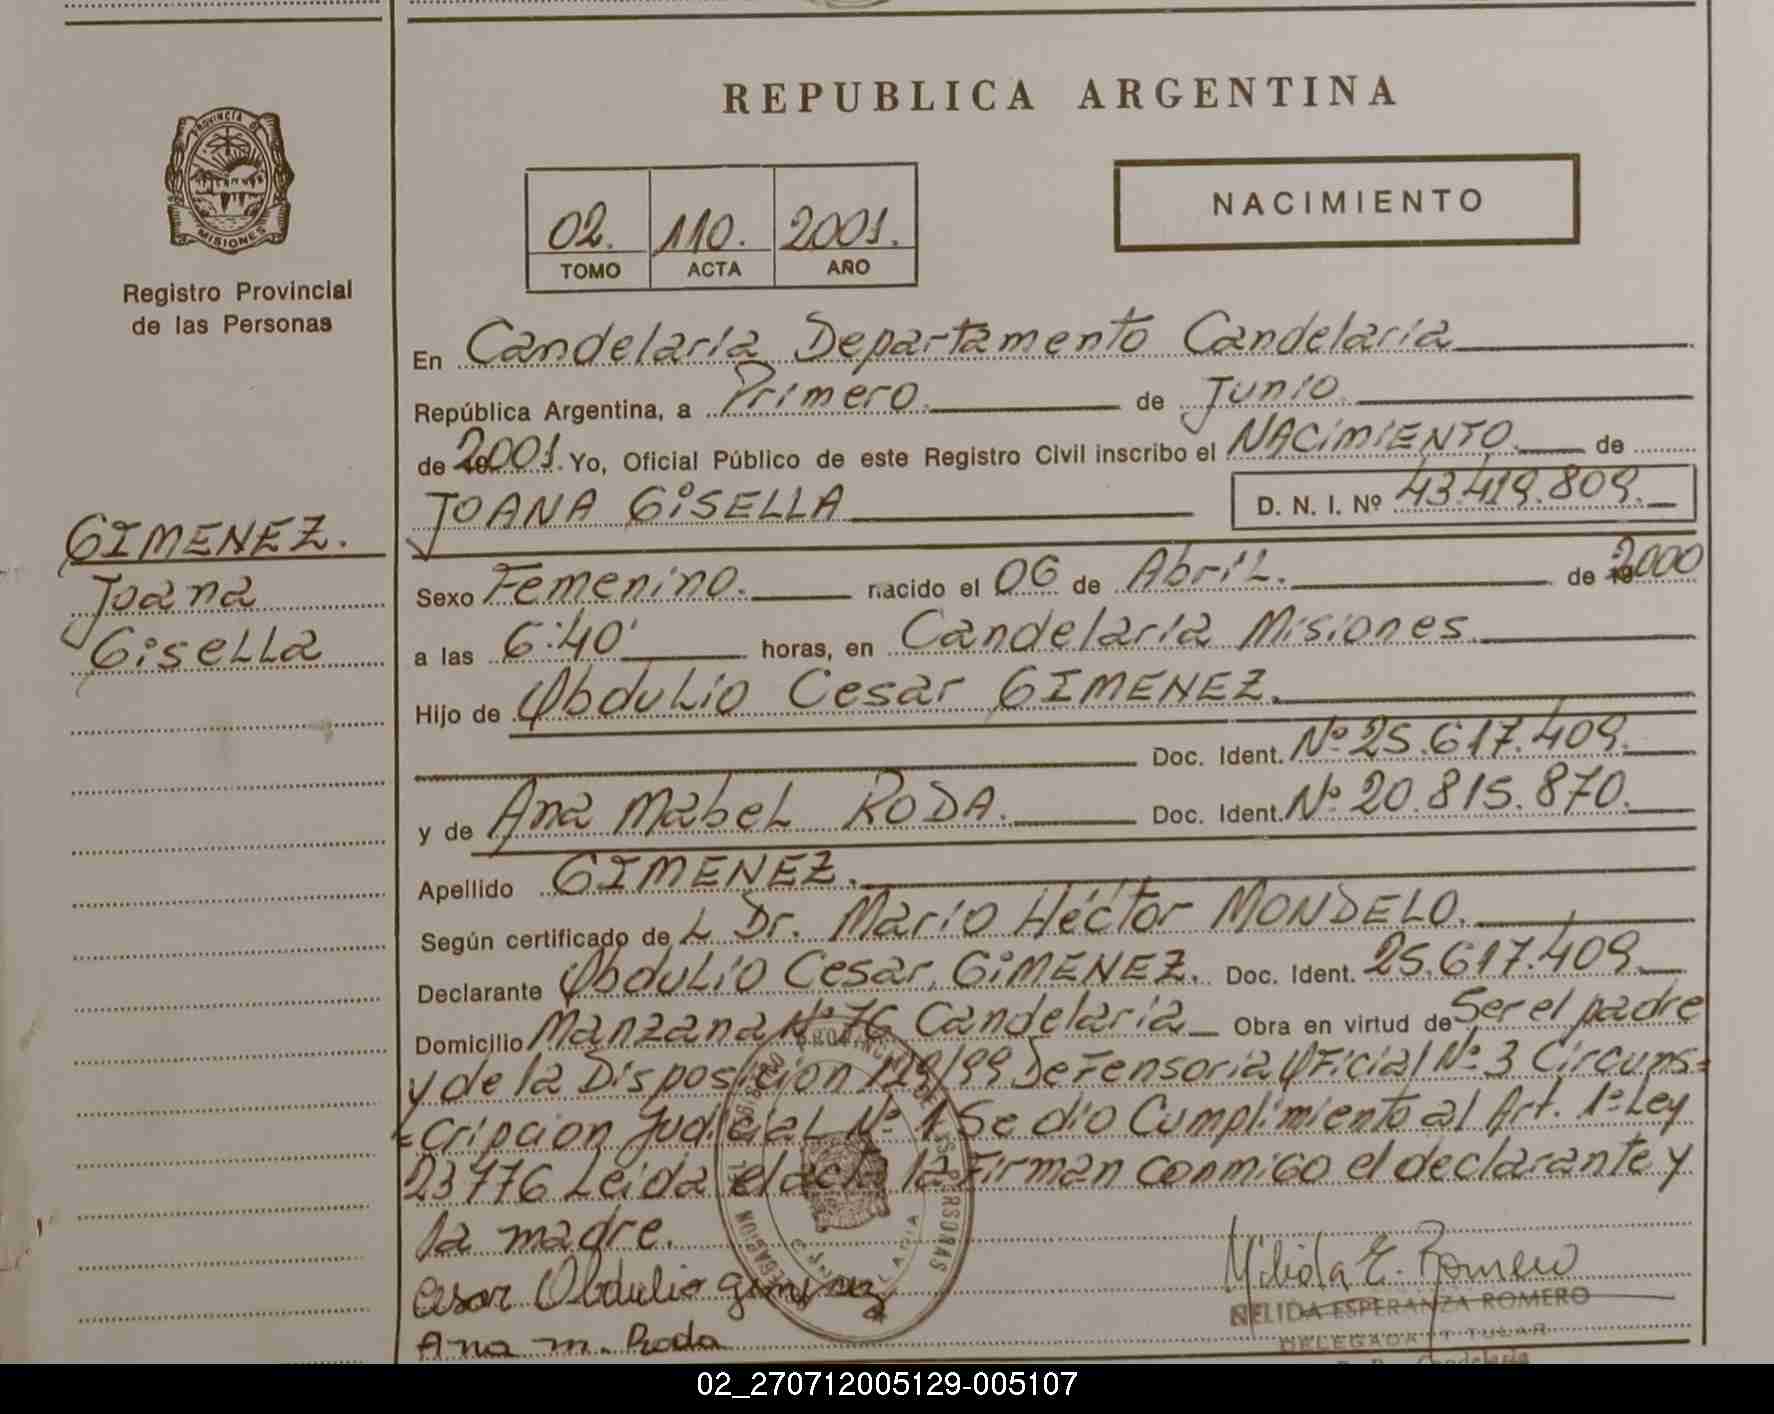 REPUBLICA ARGENTINA
PROVINCIA DE
MISIONES
Registro Provincial
de las Personas
02. 110. 2001.
TOMO ACTA AÑO
NACIMIENTO
GIMENEZ.
Joana
Gisella
En Candelaria Departamento Candelaria
República Argentina, a Primero. de Junio.
de 2001. Yo, Oficial Público de este Registro Civil inscribo el NACIMIENTO. de
JOANA GISELLA D. N. I. Nº 43.419.809.
Sexo Femenino. nacido el 06 de Abril. de 2000
a las 6:40' horas, en Candelaria Misiones.
Hijo de Obdulio Cesar GIMENEZ.
Doc. Ident. Nº 25.617.409.
y de Ana Mabel RODA. Doc. Ident. Nº 20.815.870.
Apellido GIMENEZ.
Según certificado de L Dr. Mario Héctor MONDELO.
Declarante Obdulio Cesar GIMENEZ. Doc. Ident. 25.617.409.
Domicilio Manzana Nº 76 Candelaria Obra en virtud de Ser el padre
y de la Disposición 129/99 Defensoria Oficial Nº 3 Circuns=
=cripcion Judicial Nº 1 Se dio Cumplimiento al Art. 1º Ley
23776 Leida el acta la Firman conmigo el declarante y
la madre.
Cesar Obdulio Gimenez
Ana M. Roda
Nelida E. Romero
NELIDA ESPERANZA ROMERO
DELEGADA TITULAR
Candelaria
02_270712005129-005107